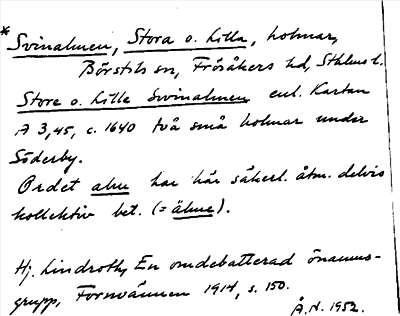 * Svinalmen, Stora o. Lilla, holmar,
Börstils sn, Frösåkers hd, Sthlms l.
Store o. Lille Svinalmen enl. Kartan
A 3,45, c. 1640 två små holmar under
Söderby.
Ordet alm har här säkerl. åtm. delvis
kollektiv bet. (= älme).
Hj. Lindroth, En omdebatterad önamns-
grupp, Fornvännen 1914, s. 150.
Å.N. 1952.